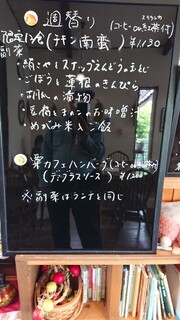 週替り
(コーヒーor紅茶付)
限定10食(チキン南蛮) ¥1130
副菜
・絹さやとスナップえんどうの玉とじ
・ごぼうと蓮根のきんぴら
・胡瓜の漬物
・豆腐ときのこのお味噌汁
・めぐみ米入ご飯
栗カフェハンバーグ(コーヒーor紅茶付)
(デミグラスソース)
※副菜はランチと同じ